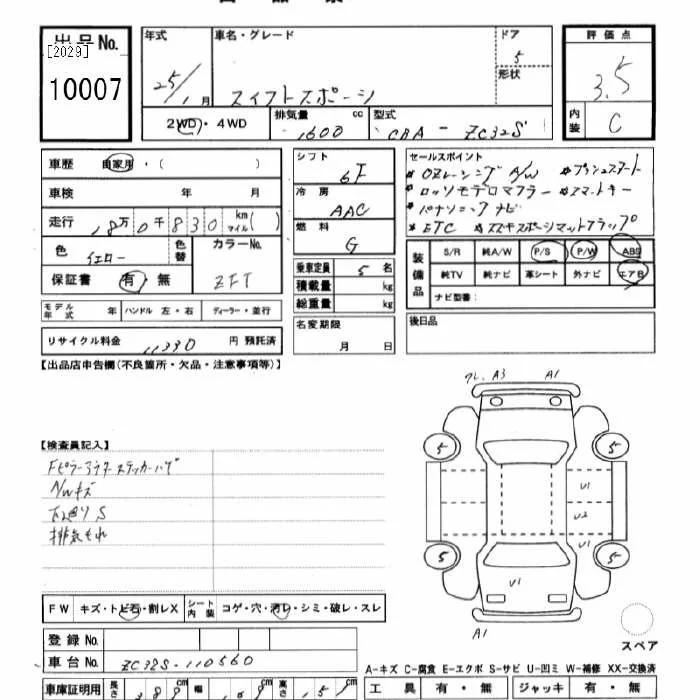 出品No.
[2029]
10007
年式
25/1月
車名・グレード
スイフトスポーツ
ドア
5
形状
評価点
3.5
内装
C
2WD・4WD
排気量
1600
cc
型式
CBA - ZC32S
車歴
自家用・( )
車検 年 月
走行
18万0千830
km
マイル
( )
色
イエロー
色替
カラーNo.
ZFT
保証書
有・無
モデル年式 年
ハンドル 左・右
ディーラー・並行
リサイクル料金
11330
円 預託済
シフト
6F
冷房
AAC
燃料
G
乗車定員 5名
積載量 kg
総重量 kg
名変期限
月 日
セールスポイント
* OZレーシング A/W * プッシュスタート
* ロッソモデロマフラー * スマートキー
* パナソニックナビ
* ETC * スズキスポーツマットフラップ
装備品
S/R 純A/W P/S P/W ABS
純TV 純ナビ 革シート 外ナビ エアB
ナビ型番:
後日品
【出品店申告欄(不良箇所・欠品・注意事項等)】
【検査員記入】
A/Wキズ
下廻りS
排気もれ
A3 A1
5 5
U1
U2
U1
5 5
U1
A1
スペア
FW キズ・トビ石・割レX
シート内装
コゲ・穴・汚レ・シミ・破レ・スレ
登録No.
車台No.
ZC32S-110560
車庫証明用
長さ 389 幅 169 高さ 151
A-キズ C-腐食 E-エクボ S-サビ U-凹ミ W-補修 XX-交換済
工具 有・無 ジャッキ 有・無